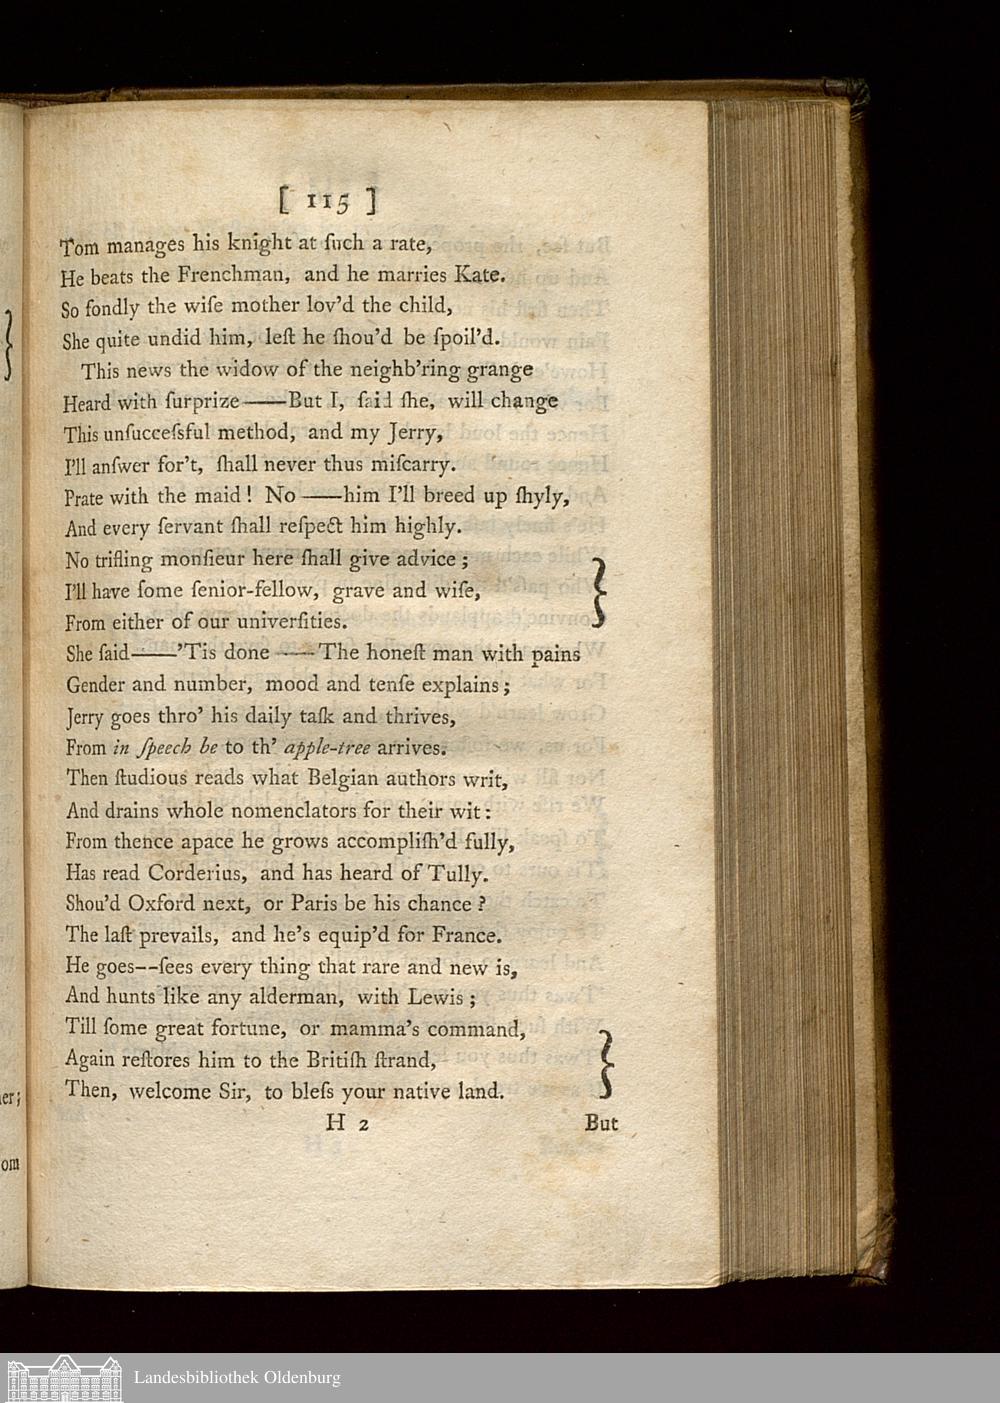 [ 115 ]
Tom manages his knight at ſuch a rate,
He beats the Frenchman, and he marries Kate.
So fondly the wiſe mother lov'd the child,
She quite undid him, leſt he ſhou'd be ſpoil'd.
This news the widow of the neighb'ring grange
Heard with ſurprize——But I, ſaid ſhe, will change
This unſucceſsful method, and my Jerry,
I'll anſwer for't, ſhall never thus miſcarry.
Prate with the maid! No——him I'll breed up ſhyly,
And every ſervant ſhall reſpect him highly.
No trifling monſieur here ſhall give advice;
I'll have ſome ſenior-fellow, grave and wiſe,
From either of our univerſities.
She ſaid——'Tis done——The honeſt man with pains
Gender and number, mood and tenſe explains;
Jerry goes thro' his daily taſk and thrives,
From in ſpeech be to th' apple-tree arrives.
Then ſtudious reads what Belgian authors writ,
And drains whole nomenclators for their wit:
From thence apace he grows accompliſh'd fully,
Has read Corderius, and has heard of Tully.
Shou'd Oxford next, or Paris be his chance?
The laſt prevails, and he's equip'd for France.
He goes--ſees every thing that rare and new is,
And hunts like any alderman, with Lewis;
Till ſome great fortune, or mamma's command,
Again reſtores him to the Britiſh ſtrand,
Then, welcome Sir, to bleſs your native land.
H 2 But
er;
om
Landesbibliothek Oldenburg